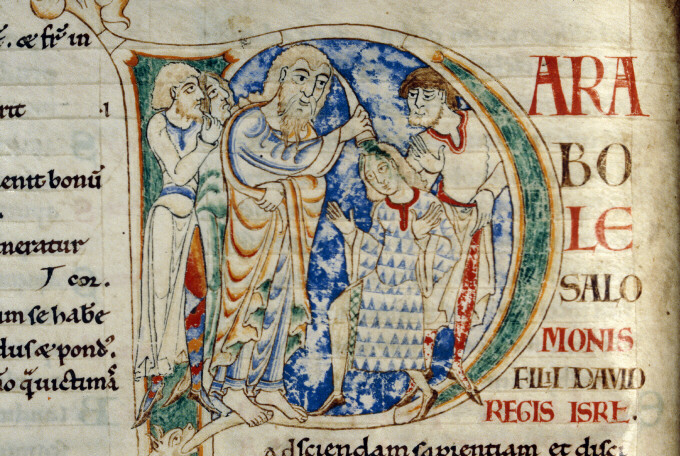 ꝫ. ⁊ fr̄ in
rit .i
enit bonū
neratur
T cor.
um se habe
dus æ pond̄.
P
ARA
BO
LE
SALO
MONIS
FILII DAVID
REGIS ISRL.
Ad sciendam sapientiam et disci